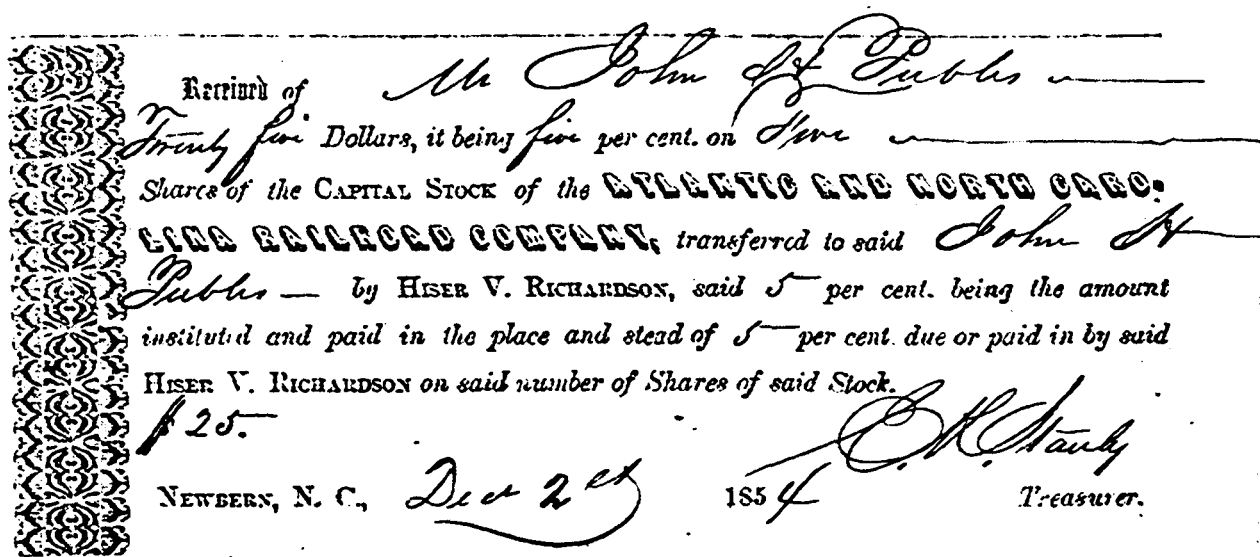 Received of Mr John H Peebles
Twenty five Dollars, it being five per cent. on Five
Shares of the CAPITAL STOCK of the ATLANTIC AND NORTH CARO-
LINA RAILROAD COMPANY, transferred to said John H
Peebles by HISER V. RICHARDSON, said 5 per cent. being the amount
instituted and paid in the place and stead of 5 per cent. due or paid in by said
HISER V. RICHARDSON on said number of Shares of said Stock.
$25.
Stanly
NEWBERN, N. C., Dec 2 1854 Treasurer.